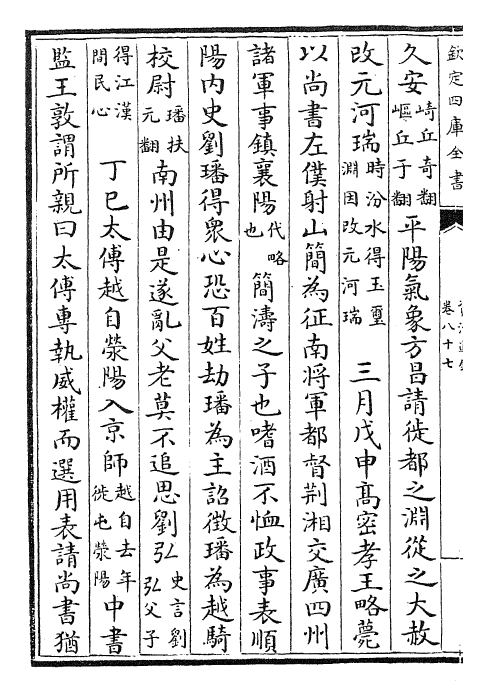 欽定四庫全書
卷八十七
久安崎丘奇翻嶇丘于翻平陽氣象方昌請徙都之淵從之大赦
改元河瑞時汾水得玉璽淵因改元河瑞 三月戊申高密孝王略薨
以尚書左僕射山簡為征南將軍都督荆湘交廣四州
諸軍事鎮襄陽代略也簡濤之子也嗜酒不恤政事表順
陽内史劉璠得衆心恐百姓劫璠為主詔徵璠為越騎
校尉璠扶元翻南州由是遂亂父老莫不追思劉弘史言劉弘父子
得江漢間民心 丁巳太傅越自滎陽入京師越自去年徙屯滎陽中書
監王敦謂所親曰太傅專執威權而選用表請尚書猶